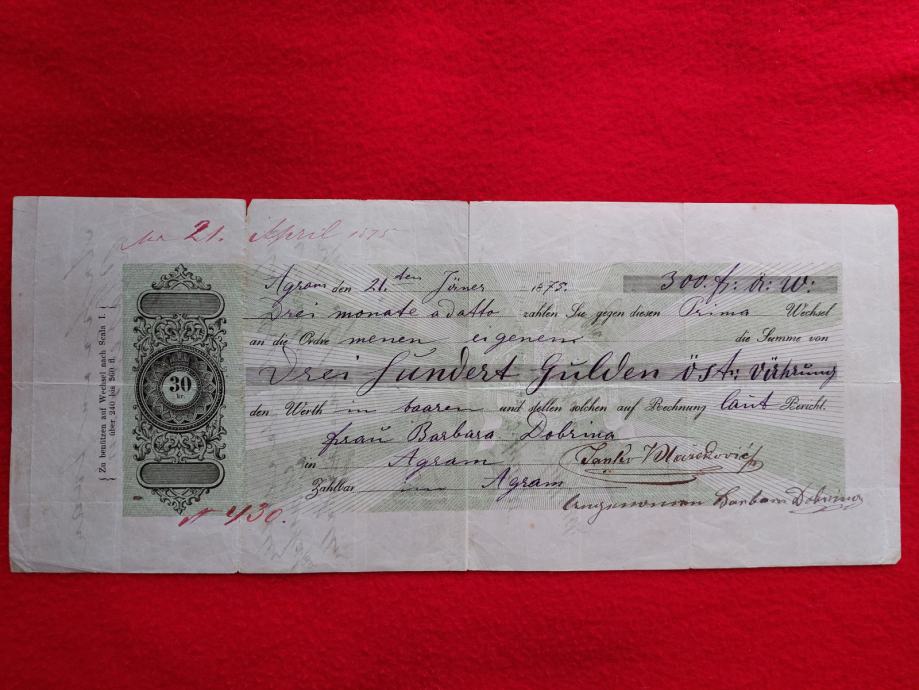 21. April 1875
Agram den 21.ten Jäner 1875. 300. f: ö: W:
Drei monate a datto zahlen Sie gegen diesen Prima Wechsel
an die Ordre menen eigenen die Summe von
Drei Hundert Gulden öst: Währung
den Werth in baaren und stellen solchen auf Rechnung laut Bericht.
Frau Barbara Dobrina
in Agram Janko
Zahlbar in Agram
Angenomen Barbara Dobrina
No 430.
30
kr.
{ Zu benützen auf Wechsel nach Scala I. }
{ über 240 bis 300 fl. }